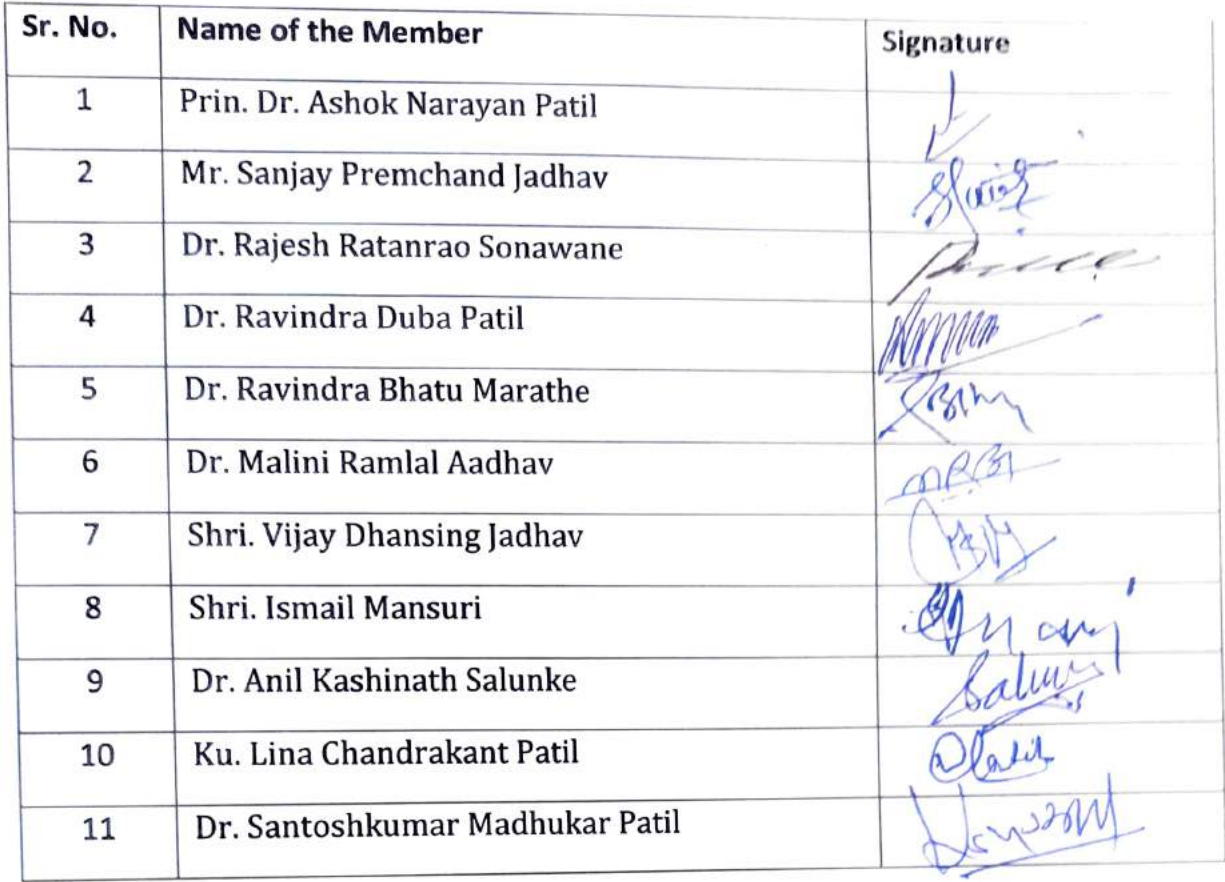 Sr. No. Name of the Member Signature
1 Prin. Dr. Ashok Narayan Patil
2 Mr. Sanjay Premchand Jadhav
3 Dr. Rajesh Ratanrao Sonawane
4 Dr. Ravindra Duba Patil
5 Dr. Ravindra Bhatu Marathe
6 Dr. Malini Ramlal Aadhav
7 Shri. Vijay Dhansing Jadhav
8 Shri. Ismail Mansuri
9 Dr. Anil Kashinath Salunke
10 Ku. Lina Chandrakant Patil
11 Dr. Santoshkumar Madhukar Patil